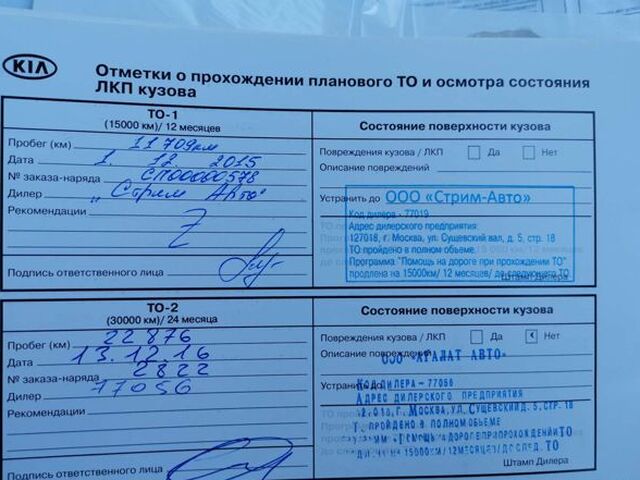 KIA
Отметки о прохождении планового ТО и осмотра состояния
ЛКП кузова
ТО-1
(15000 км)/ 12 месяцев
Пробег (км) 11709км
Дата 1. 12. 2015
№ заказа-наряда СП00000578
Дилер "Стрим Авто"
Рекомендации Z
Подпись ответственного лица
Состояние поверхности кузова
Повреждения кузова / ЛКП Да Нет
Описание повреждений
Устранить до ООО «Стрим-Авто»
Код дилера - 77019
Адрес дилерского предприятия:
127018, г. Москва, ул. Сущевский вал, д. 5, стр. 18
ТО пройдено в полном объеме.
Программа "Помощь на дороге при прохождении ТО"
продлена на 15000км/ 12 месяцев/ до следующего ТО
Штамп Дилера
ТО-2
(30000 км)/ 24 месяца
Пробег (км) 22876
Дата 13.12.16
№ заказа-наряда 2822
Дилер 77056
Рекомендации
Подпись ответственного лица
Состояние поверхности кузова
Повреждения кузова / ЛКП Да Нет
Описание повреждений
ООО АВТО»
Устранить до
КОД ДИЛЕРА - 77056
АДРЕС ДИЛЕРСКОГО ПРЕДПРИЯТИЯ
Г. МОСКВА, УЛ. СУЩЕВСКИЙ Д. 5, СТР. 18
ПРОЙДЕНО В ПОЛНОМ ОБЪЕМЕ
ДОРОГЕ ПРИ ПРОХОЖДЕНИИ ТО
НА 15000КМ/ 12МЕСЯЦЕВ/ ТО
Штамп Дилера